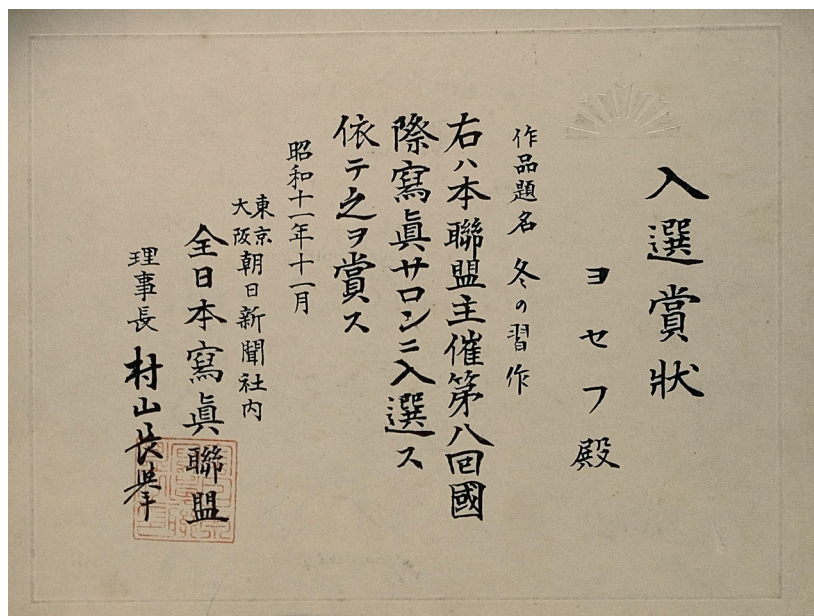 入選賞狀
ヨセフ殿
作品題名 冬の習作
右ハ本聯盟主催第八回國
際寫眞サロンニ入選ス
依テ之ヲ賞ス
昭和十一年十一月
東京
大阪
朝日新聞社内
全日本寫眞聯盟
理事長 村山長擧